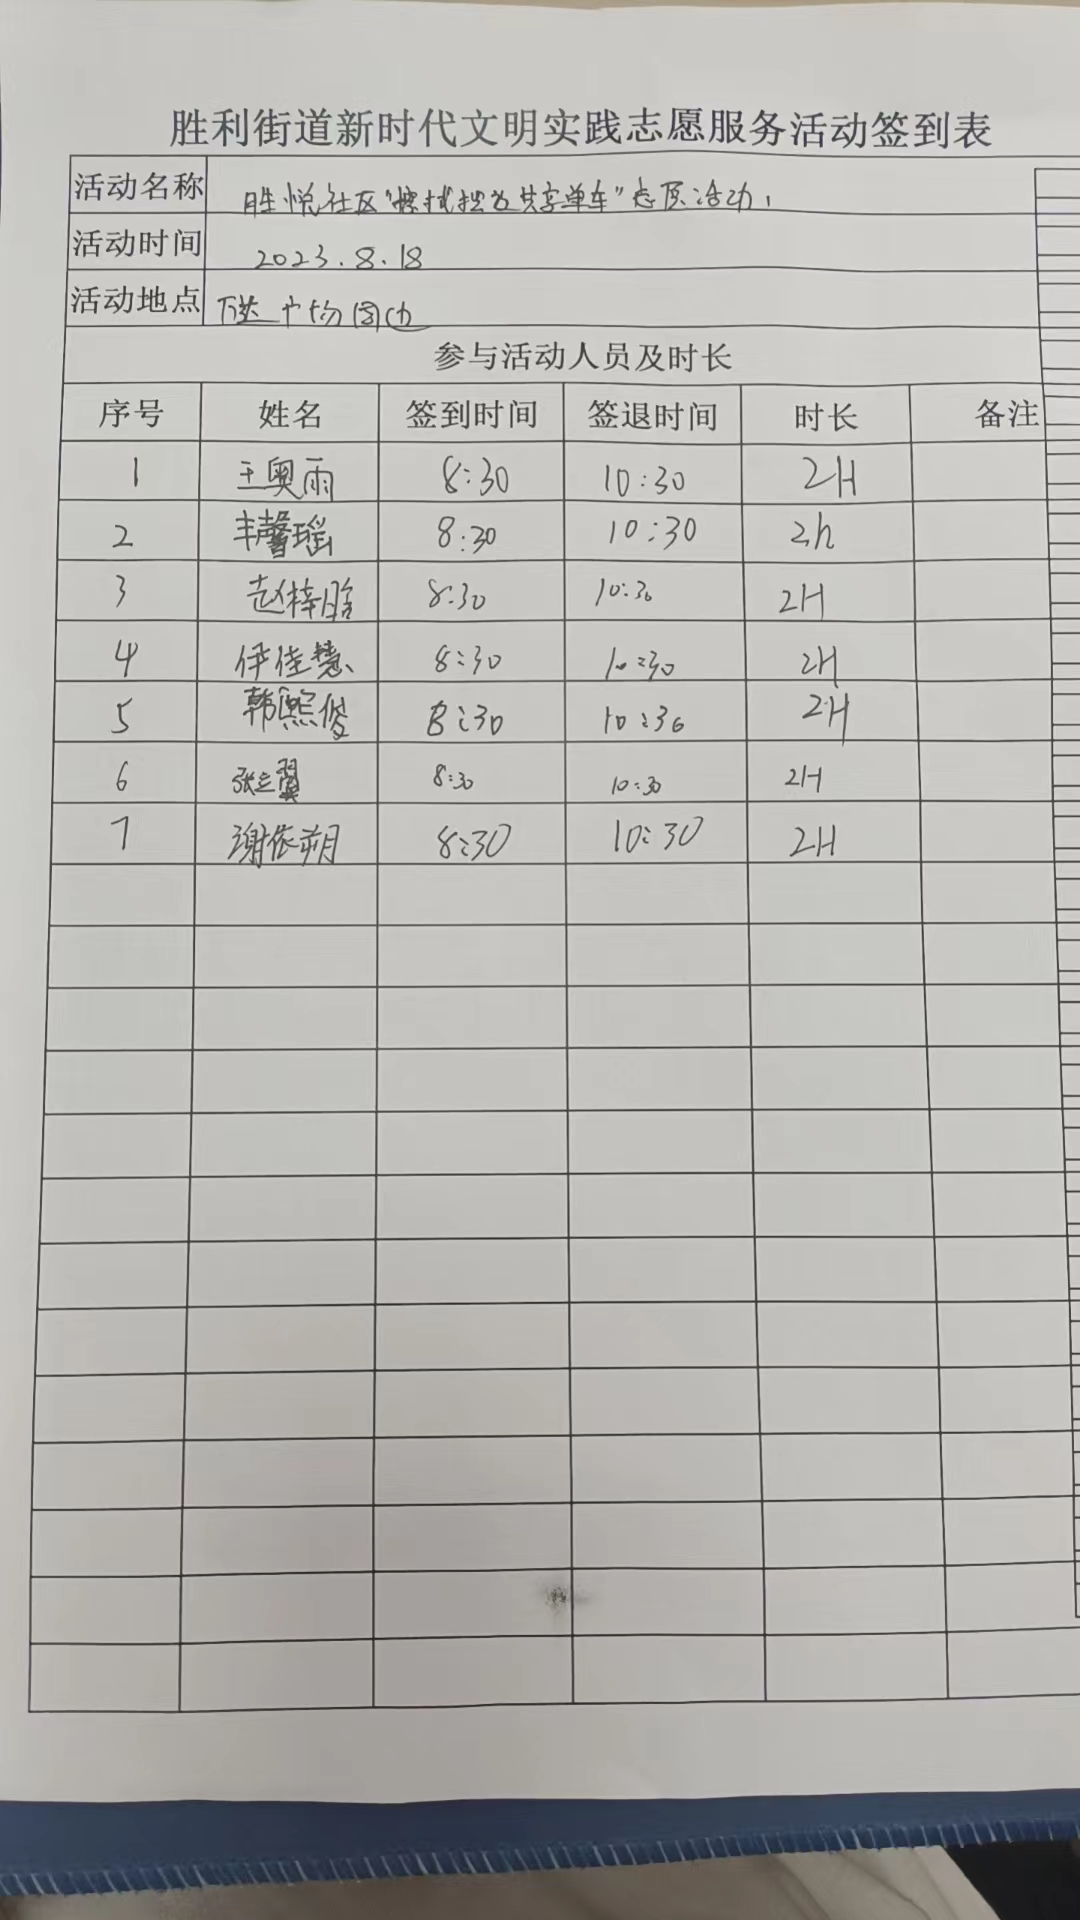 胜利街道新时代文明实践志愿服务活动签到表
活动名称 胜悦社区"擦拭摆放共享单车"志愿活动
活动时间 2023.8.18
活动地点 万达广场周边
参与活动人员及时长
序号 姓名 签到时间 签退时间 时长 备注
1 王奥雨 8:30 10:30 2H
2 丰馨瑶 8:30 10:30 2h
3 赵梓晗 8:30 10:30 2H
4 伊佳慧 8:30 10:30 2H
5 韩熙俊 8:30 10:30 2H
6 张立翼 8:30 10:30 2H
7 谢依朔 8:30 10:30 2H